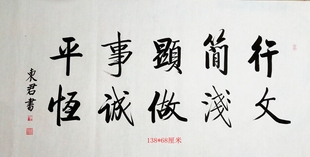 行文
簡淺
顯做
事誠
平恆
東君書
138*68厘米